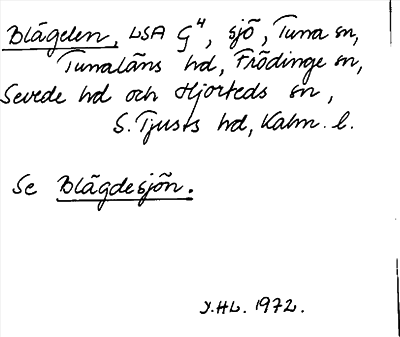 Blägden, LSA G4, sjö, Tuna sn,
Tunaläns hd, Frödinge sn,
Sevede hd och Hjorteds sn,
S. Tjusts hd, Kalm. l.
Se Blägdesjön.
Y.HL. 1972.